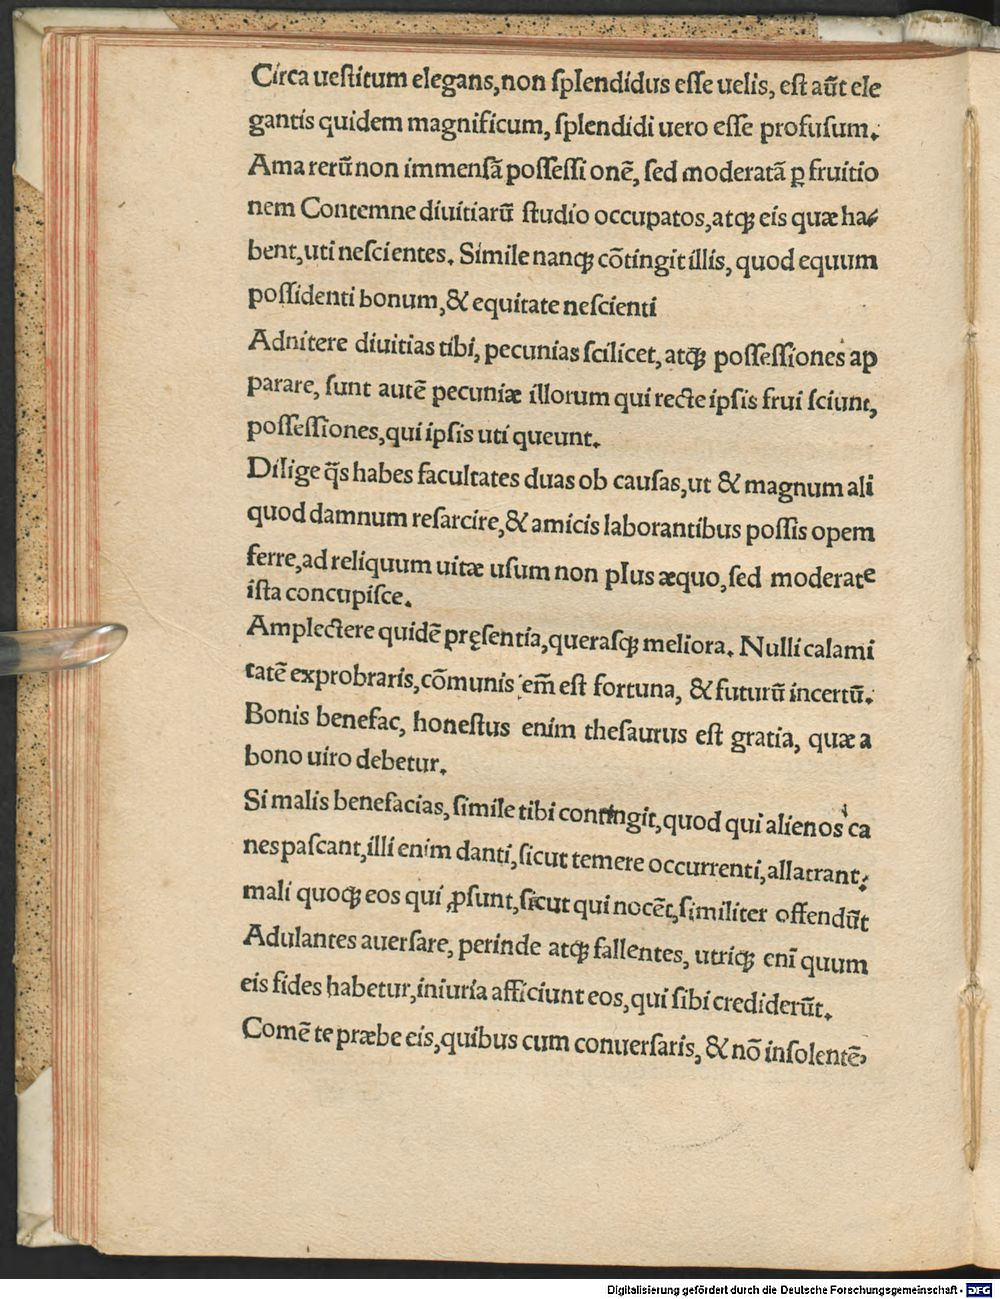 Circa ueſtitum elegans,non ſplendidus eſſe uelis, eſt aūt ele
gantis quidem magnificum, ſplendidi uero eſſe profuſum.
Ama rerū non immenſã poſſeſſi onē, ſed moderatã ꝑ fruitio
nem Contemne diuitiarū ſtudio occupatos,atqꝫ eis quæ ha⸗
bent,uti neſcientes. Simile nanqꝫ cõtingit illis, quod equum
poſſidenti bonum,& equitate neſcienti
Adnitere diuitias tibi, pecunias ſcilicet, atqꝫ poſſeſſiones ap
parare, ſunt autē pecuniæ illorum qui recte ipſis frui ſciunt,
poſſeſſiones,qui ipſis uti queunt.
Dilige q̄s habes facultates duas ob cauſas,ut & magnum ali
quod damnum reſarcire,& amicis laborantibus poſſis opem
ferre,ad reliquum uitæ uſum non plus æquo,ſed moderate
iſta concupiſce.
Amplectere quidē pręſentia,queraſqꝫ meliora. Nulli calami
tatē exprobraris,cõmunis em̄ eſt fortuna, & futurū incertū.
Bonis benefac, honeſtus enim theſaurus eſt gratia, quæ a
bono uiro debetur.
Si malis benefacias, ſimile tibi contingit,quod qui alienos ca
nes paſcant,illi enim danti,ſicut temere occurrenti,allatrant:
mali quoqꝫ eos qui ꝓſunt,ſicut qui nocēt,ſimiliter offendūt
Adulantes auerſare, perinde atqꝫ fallentes, utriqꝫ enī quum
eis fides habetur,iniuria afficiunt eos,qui ſibi crediderūt.
Comē te præbe eis,quibus cum conuerſaris, & nõ inſolentē,
Digitalisierung gefördert durch die Deutsche Forschungsgemeinschaft - DFG